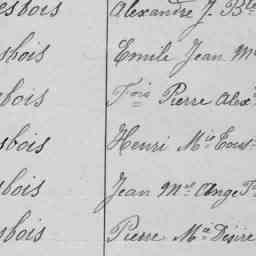 esbois Alexandre J. Bte
sbois Emile Jean M
sbois Fois Pierre Alex
sbois Henri Mie Tous
sbois Jean Mel Ange F
sbois Pierre Mie Désiré